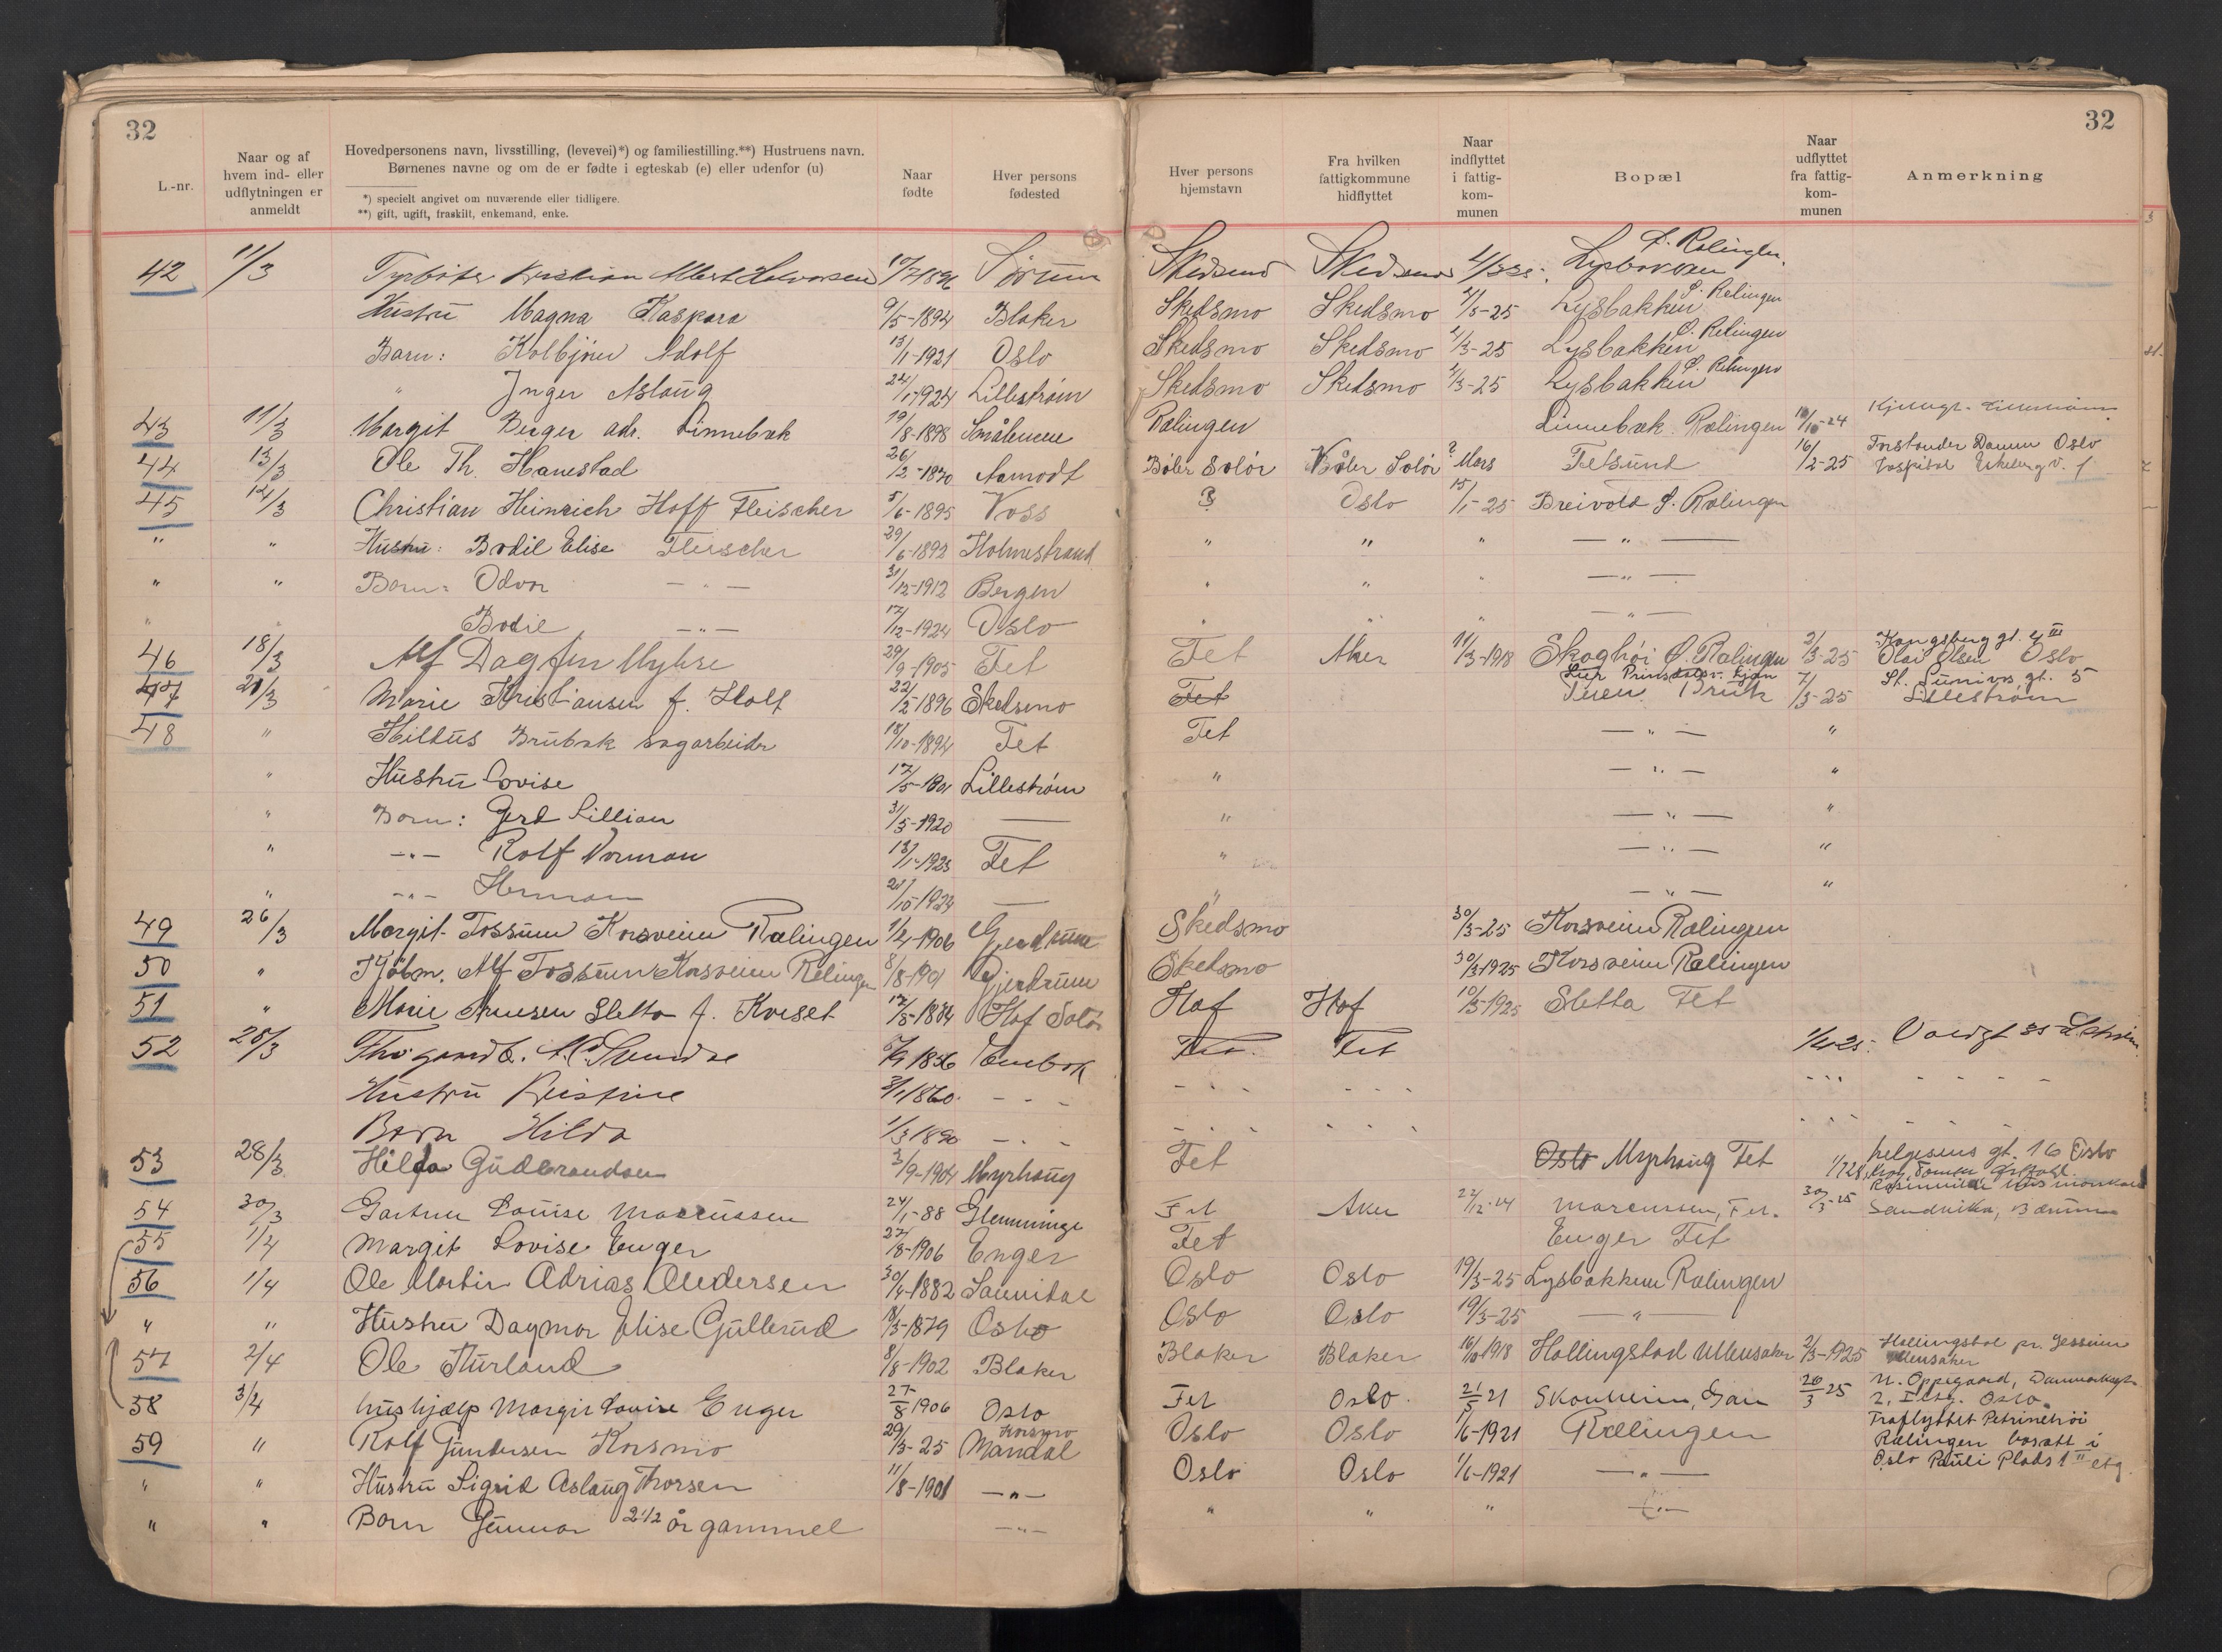 32
L.-nr.
Naar og af hvem ind- eller udflytningen er anmeldt
Hovedpersonens navn, livsstilling, (levevei)*) og familiestilling.**) Hustruens navn.
Børnenes navne og om de er fødte i egteskab (e) eller udenfor (u)
*) specielt angivet om nuværende eller tidligere.
**) gift, ugift, fraskilt, enkemand, enke.
Naar fødte
Hver persons fødested
Hver persons hjemstavn
Fra hvilken fattigkommune hidflyttet
Naar indflyttet i fattig-kom-munen
Bopæl
Naar udflyttet fra fattig-kom-munen
Anmerkning
32
42 11/3 Kristian Albert Halvorsen 10/7 1896 Sørum Skedsmo Skedsmo
Hustru Magna Kaspara 9/5-1894 Blaker Skedsmo Skedsmo 4/3-25 Lysbakken S. Relingen
Barn: Kolbjörn Adolf 13/1-1921 Oslo Skedsmo Skedsmo 4/3-25 Lysbakken S. Relingen
" Inger Aslaug 24/1-1924 Lillestrøm Skedsmo Skedsmo 4/3-25 Lysbakken S. Relingen
43 11/3 Margit Berger adr. Linnebæk 19/8-1898 Smålenene Rælingen Linnebæk Rælingen
44 13/3 Ole Th. Hanestad 26/2-1870 Aamodt Våler Solör ? Mars Fetsund 16/2-25 Forstander Oslo Hospital
45 14/3 Christian Heinrich Hoff Fleischer 5/6-1895 Voss ? Oslo 15/1-25 Breivold S. Rælingen
" " Hustru: Bodil Elise Fleischer 29/6-1892 Holmestrand " " " — " —
" " Barn: Odvar — " — 31/12-1912 Bergen " " " — " —
" " Bodil — " — 17/12-1924 Oslo " " " — " —
46 18/3 Alf Dagfin Myhre 29/9-1905 Fet Fet Aker 11/3-1918 Skoghöi Ø. Rælingen 2/3-25 Kongsberg gt. 4 III Olai Olsen Oslo
47 21/3 Marie Kristiansen f. Holt 22/2-1896 Skedsmo Fet Tuen Bruk 7/3-25 St. Sunivas gt. 5 Lillestrøm
48 " Hilbus Brubæk sagarbeider 18/10-1894 Fet Fet — " — "
" Hustru Lovise 17/5-1901 Lillestrøm " — " — "
" Barn: Gerd Lillian 31/5-1920 — " — " — "
" — " — Rolf Norman 13/1-1923 Fet " — " — "
" — " — Herman — " — " — "
49 26/3 Margit Fossum Korsveien Rælingen 1/4-1906 Gjerdrum Skedsmo 30/3-25 Korsveien Rælingen
50 " Alf Fossum Korsveien Rælingen 8/8-1901 Gjerdrum Skedsmo 30/3-1925 Korsveien Rælingen
51 " Marie Arnesen Sletta f. Kveset 17/5-1884 Hof Solör Hof Hof 10/3-1925 Sletta Fet
52 28/3 1856 Enebak Fet Fet
Hustru Kristine 1860
Barn Hilda 1/3 1890
53 28/3 Hilda Gudbrandsen 3/9-1904 Myrhaug Fet Oslo Myrhaug Fet helgesens gt. 16 Oslo
54 30/3 Gartner Louise Marcussen 24/1-88 Glemminge Fet Aker 22/12-14 Marcussen, Fet. 30/3-25 Sandvika, Bærum
55 1/4 Margit Lovise Enger 27/8-1906 Enger Fet Enger Fet
56 1/4 Ole Martin Adrias Andersen 30/4-1882 Sannidal Oslo Oslo 19/3-25 Lysbakken Rælingen
" " Hustru Dagmar Elise Gullerud 18/3-1879 Oslo Oslo Oslo 19/3-25 — " —
57 2/4 Ole Kurland 8/8-1902 Blaker Blaker Blaker 16/10-1918 Hallingstad Ullensaker 2/3-1925 Hallingstad pr. Jessheim Ullensaker
58 3/4 hushjælp Margit Lovise Enger 27/8 1906 Oslo Fet Oslo. 21/5 21 Skovheim, Gan 26/3 25 N. Oppegaard, Danmarksgt. 2, I etg. Oslo.
59 " Rolf Gundersen Korsmo 29/3-25 Korsmo Mandal Oslo Oslo 1/6-1921 Rælingen Fraflyttet Petrinehöi
Rælingen bosatt i
" " Hustru Sigrid Aslaug Thorsen 11/8-1901 — " — Oslo Oslo 1/6-1921 — " — Oslo Pauli Plads 1 II etg.
" " Barn Gunnar 2 1/2 år gammel — " — " " " — " —